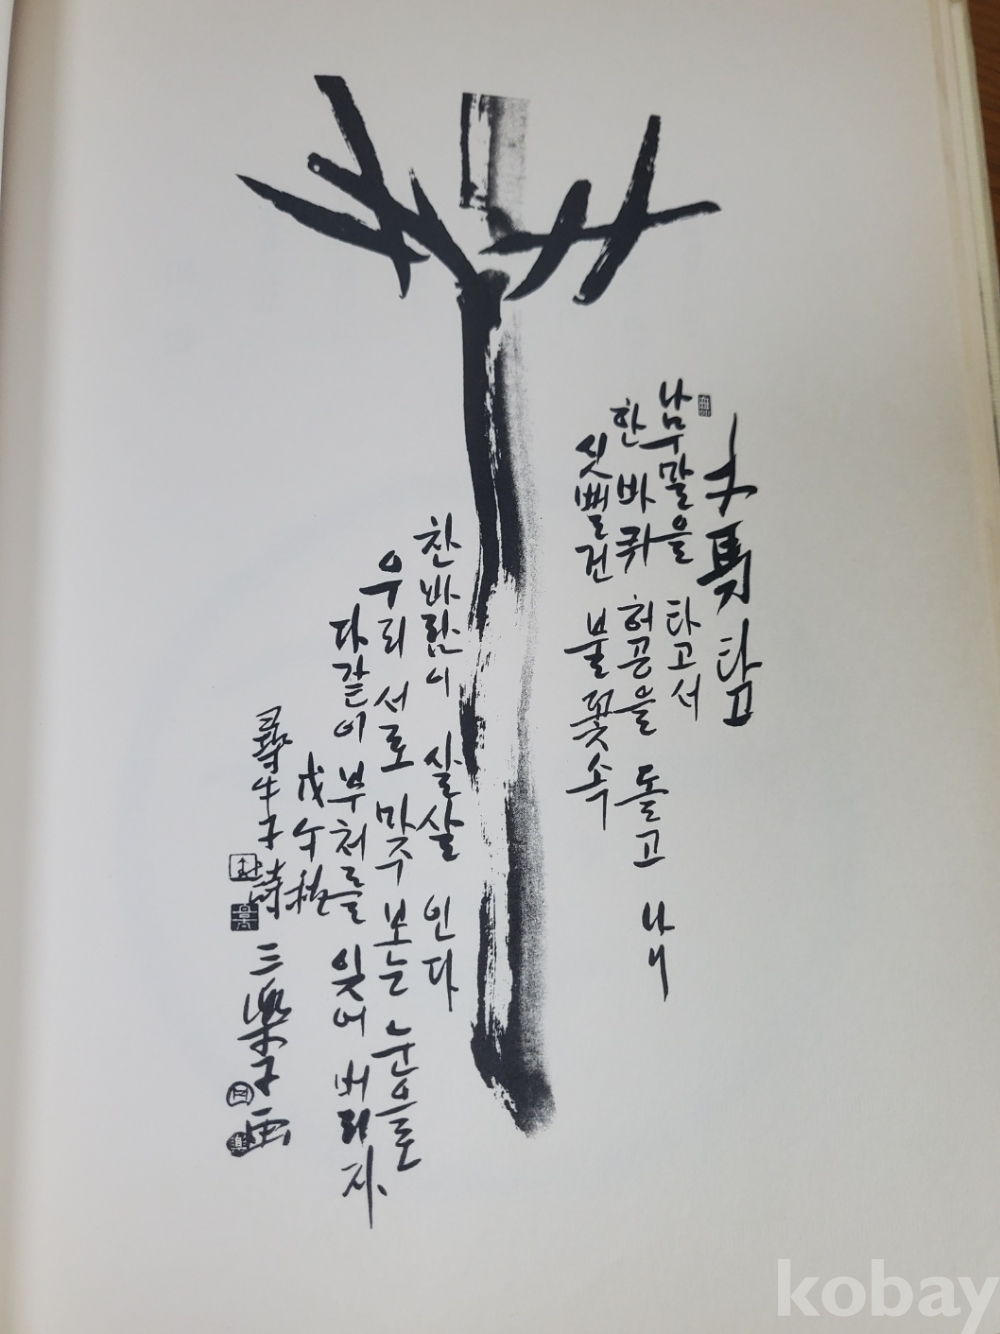 木馬 탑
나무말을 타고서
한 바퀴 허공을 돌고 나니
싯뻘건 불꽃 속
찬바람이 살살 인다
우리 서로 마주 보는 눈으로
다같이 부처를 잊어 버리자.
戊午秋
尋牛子 詩 三樂子 画
kobay